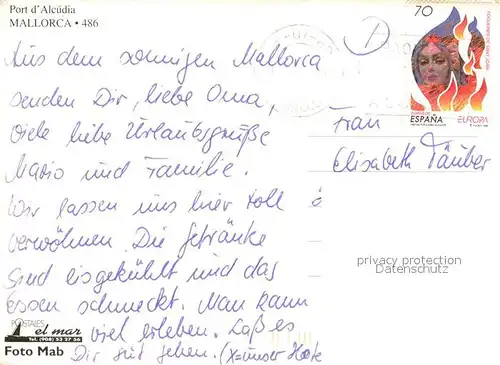 Port d'Alcúdia
MALLORCA • 486
70
D
Aus dem sonnigen Mallorca
senden Dir, liebe Oma,
viele liebe Urlaubsgrüße
Mario und Familie.
Wir lassen uns hier toll
verwöhnen. Die Getränke
sind eisgekühlt und das
Essen schmeckt. Man kann
viel erleben. Laß es
Dir gut gehen. (X=unser
ESPAÑA
EUROPA
Frau
Elisabeth Täuber
privacy protection
Datenschutz
POSTALES
el mar
Tel. (908) 53 27 56
Foto Mab